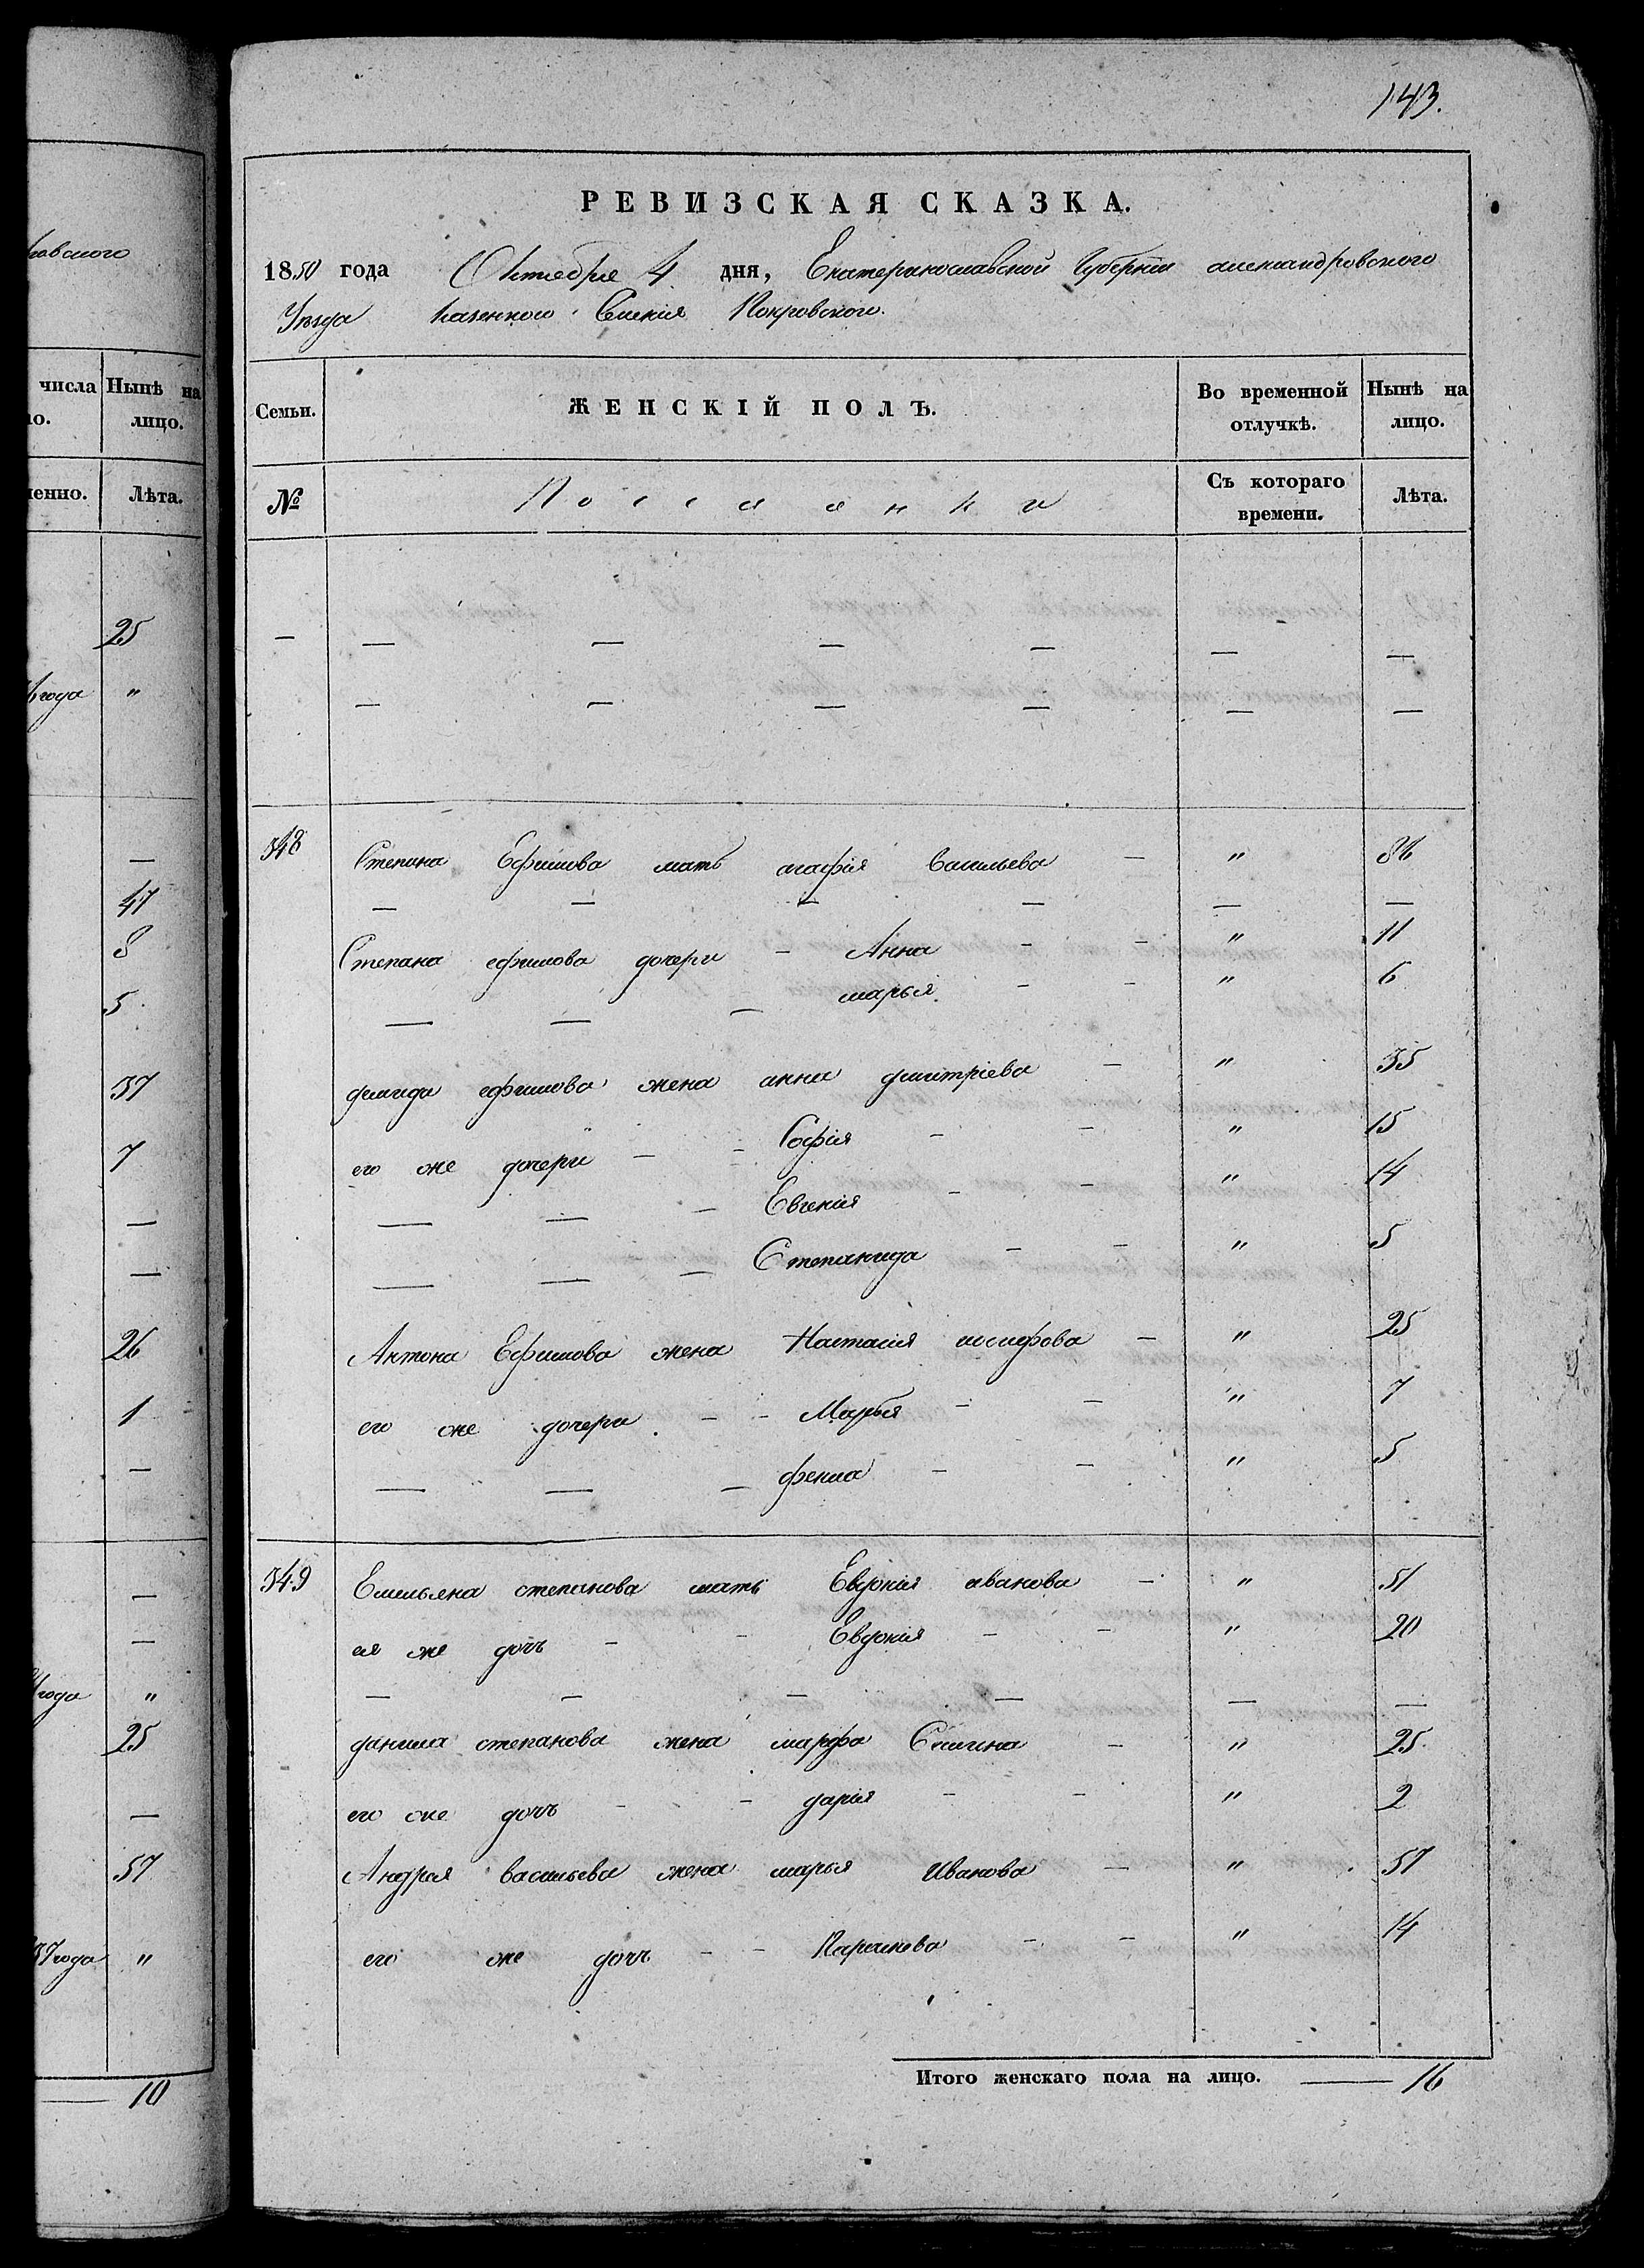 143.
РЕВИЗСКАЯ СКАЗКА.
1850 года Октября 4 дня, Екатеринославской Губернiи александровского
Уезда казенного Селенiя Покровского.
Семьи.
ЖЕНСКIЙ ПОЛЪ.
Во временной отлучкѣ.
Нынѣ на лицо.
№
Поселянки
Съ котораго времени.
Лѣта.
— — — — — — —
— — — — — —
348 Степана Ефимова мать агафiя васильева — " 86
— — — — — —
Степана ефимова дочери — Анна — — " 11
— — — марья. — — " 6
демида ефимова жена анна дмитрiева — " 35
его же дочери — — Софiя — — " 15
— — — Евгенiя — — " 14
— — — Степанида — — " 5
Антона Ефимова жена Настасiя иосифова — " 25
его же дочери — — Марья — — " 7
— — — фекла — — " 5
349 Емельяна степанова мать Евдокiя иванова — " 51
ея же дочь — — Евдокiя — — " 20
— — — — — —
данила степанова жена марфа Семина — " 25
его же дочь — — дарiя — — " 2
Андрея васильева жена марья Иванова — " 57
его же дочь — — — — " 14
Итого женскаго пола на лицо. — 16
ковского
числа
ло.
Нынѣ на лицо.
менно.
Лѣта.
25
года "
—
47
8
5
37
7
—
—
26
1
—
—
—
года "
25
—
57
37 года "
— 10